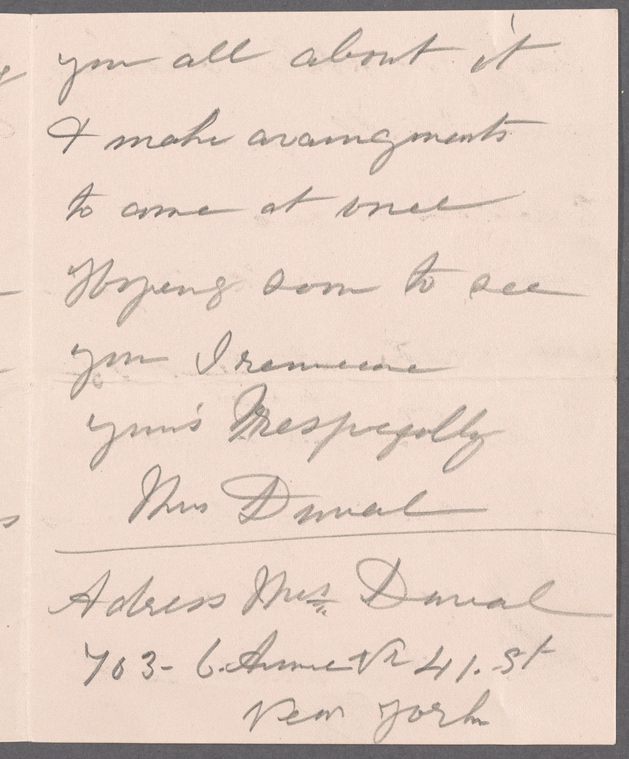 you all about it
& make arraingments
to come at once
Hopeng soon to see
you I remeene
your's Respegolly
Mrs Duval
Adress Mrs. Duval
703- 6. Avnue 41. St
New York